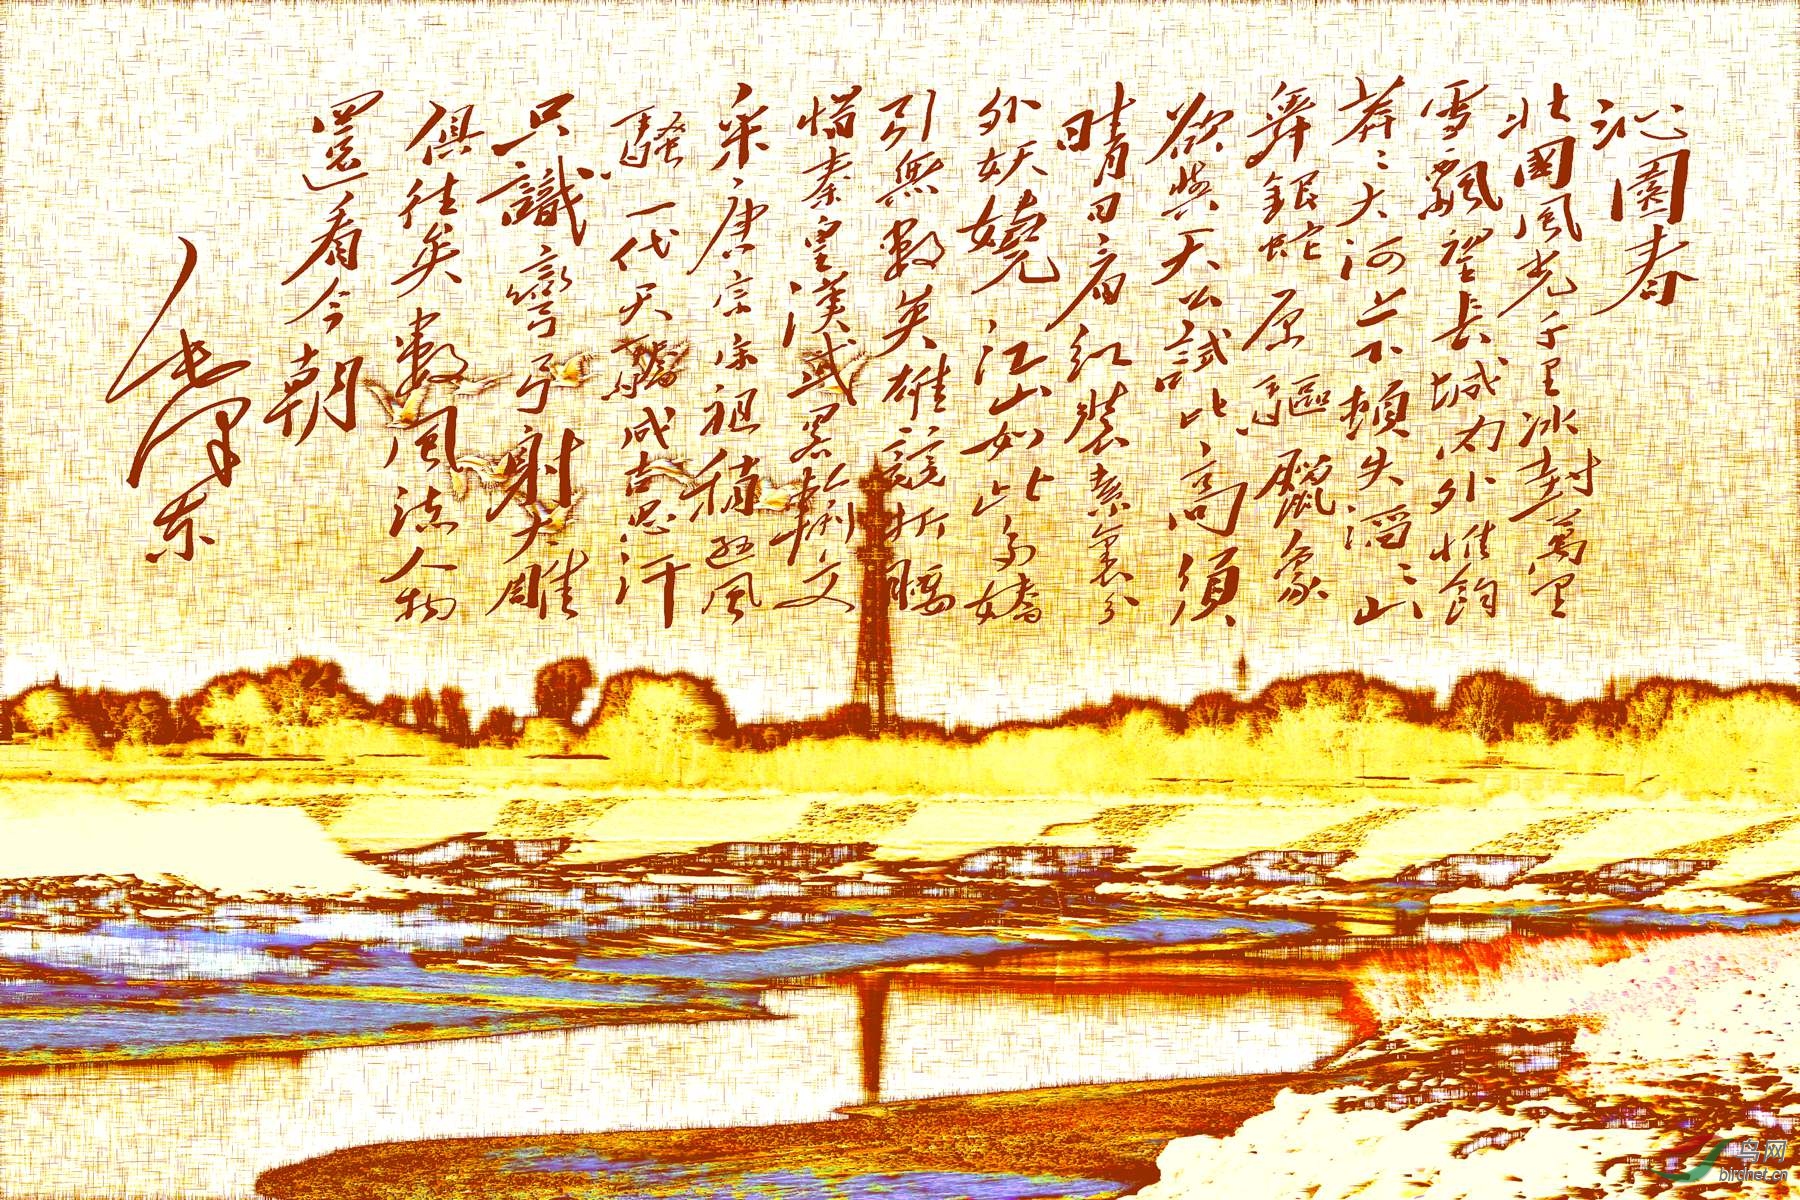 沁園春
北國風光千里冰封萬里
雪飄望長城内外惟餘
莽〻大河上下頓失滔〻山
舞銀蛇原驅臘象
欲與天公試比高須
晴日看紅裝素裹分
外妖嬈江山如此多嬌
引無數英雄競折腰
惜秦皇漢武略輸文
采唐宗宋祖稍遜風
騷一代天驕成吉思汗
只識彎弓射大雕
俱往矣數風流人物
還看今朝
毛澤东
鸟网
birdnet.cn